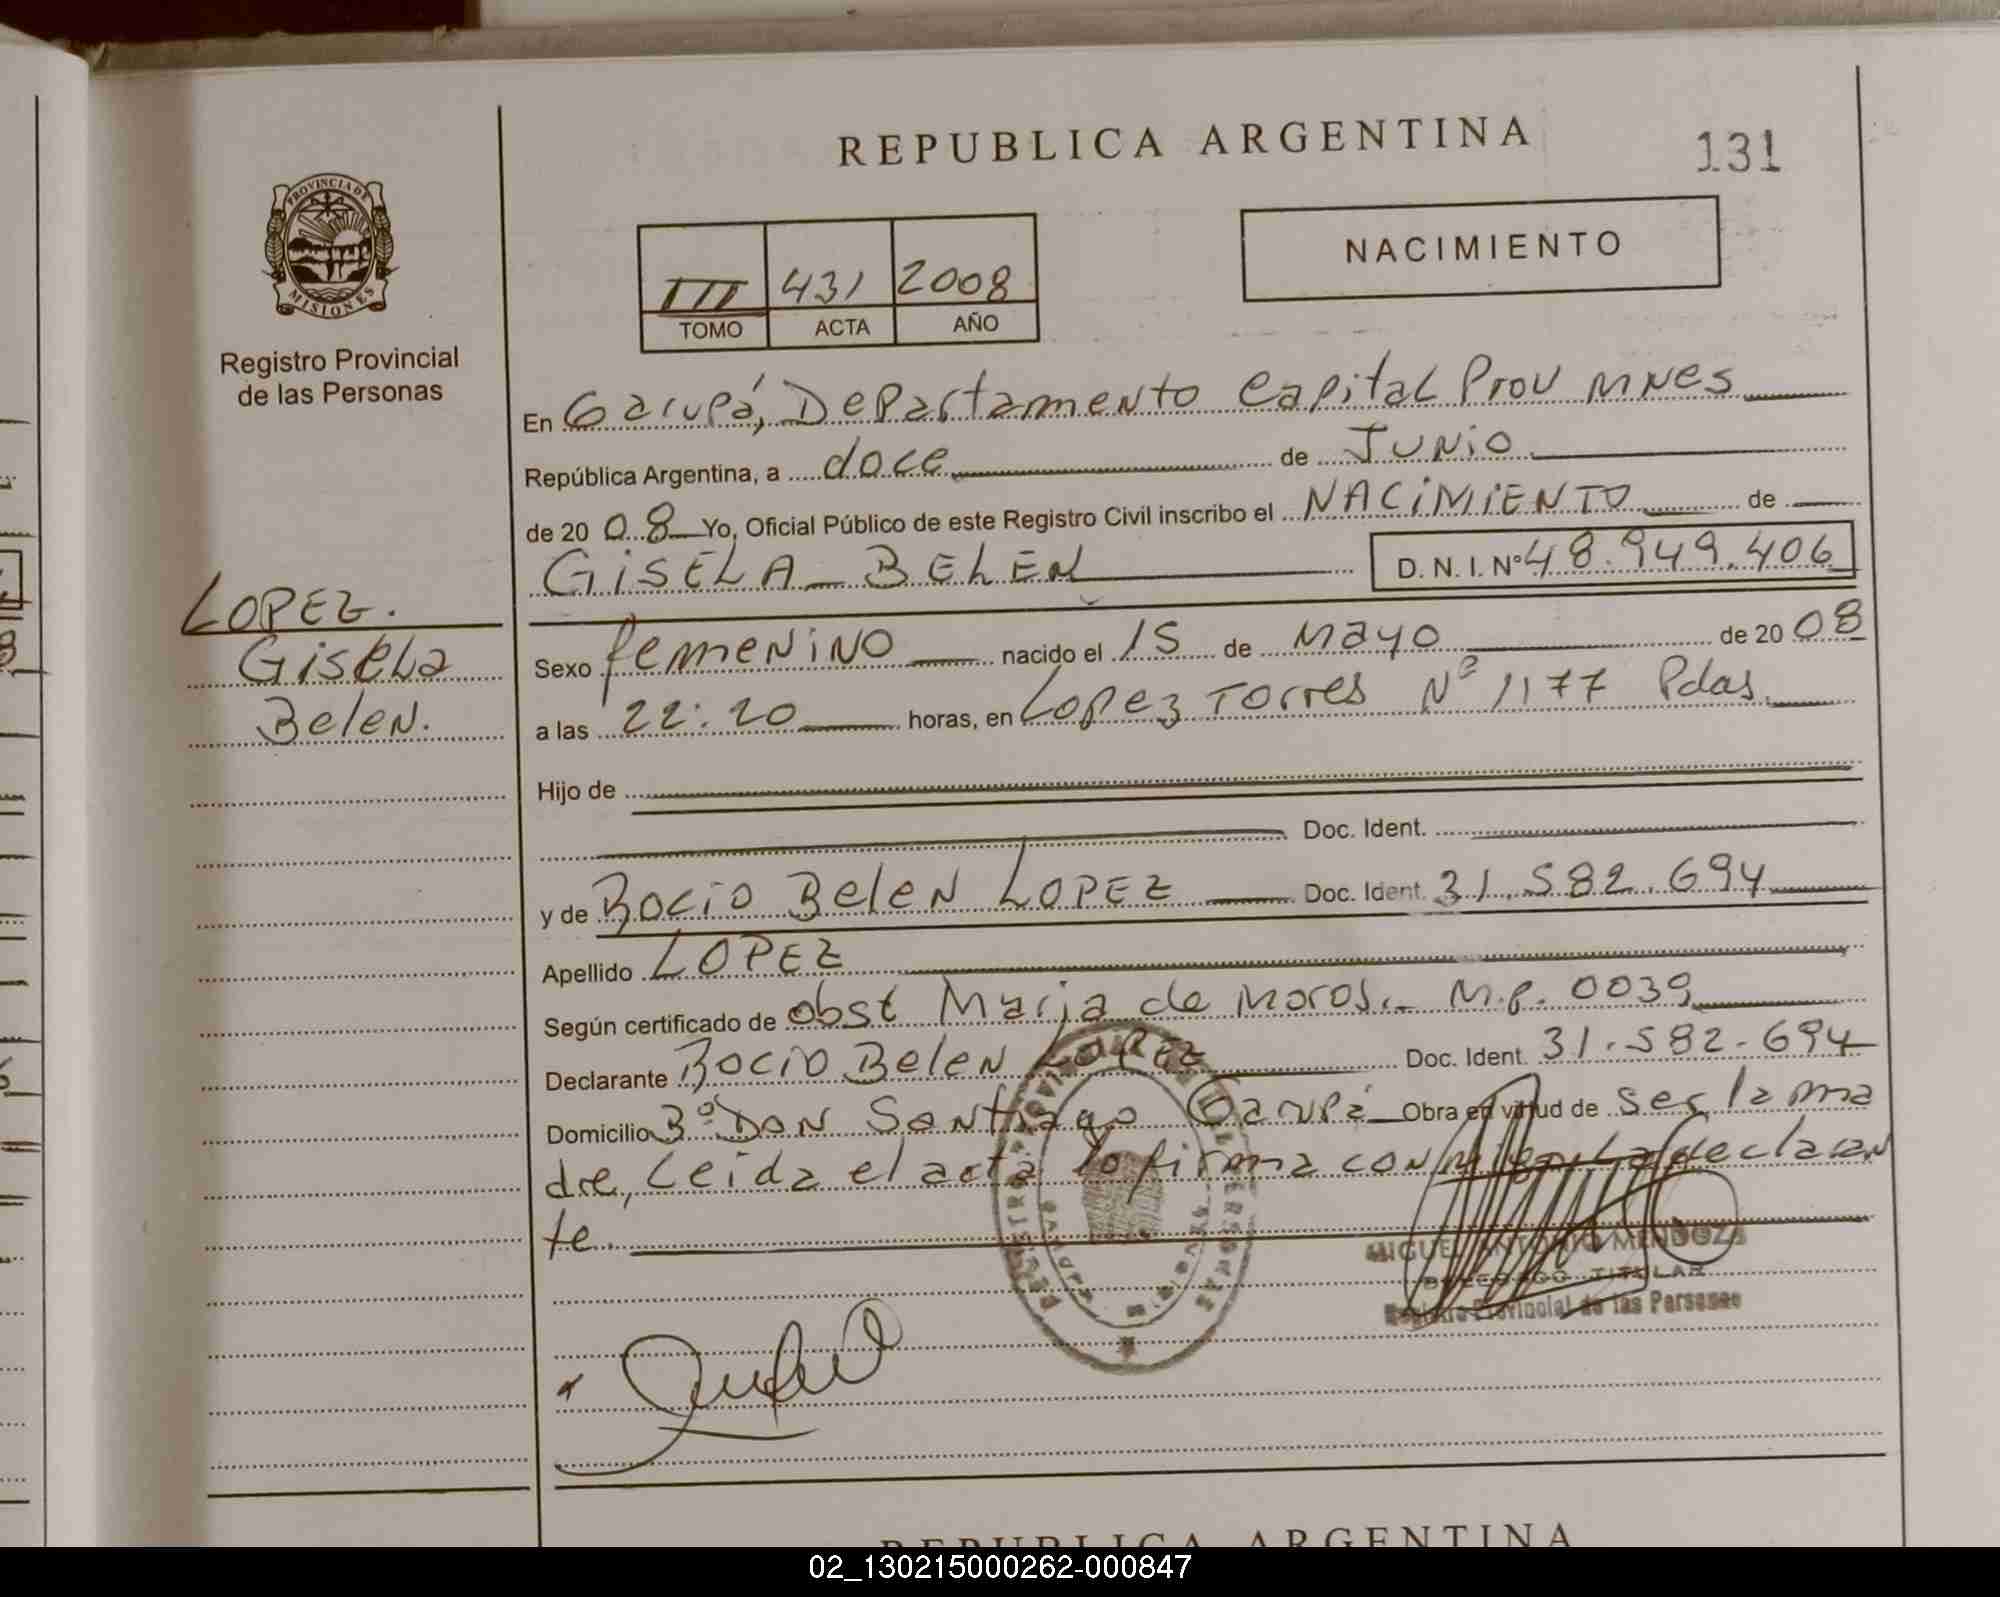 REPUBLICA ARGENTINA
131
PROVINCIA DE
MISIONES
Registro Provincial
de las Personas
III 431 2008
TOMO ACTA AÑO
NACIMIENTO
En Garupá, Departamento Capital Prov MNes
República Argentina, a doce de Junio
de 2008 Yo, Oficial Público de este Registro Civil inscribo el NACIMIENTO de
GISELA BELEN D. N. I. Nº 48.949.406
LOPEZ.
Gisela
Belen.
Sexo femenino nacido el 15 de Mayo de 2008
a las 22:20 horas, en Lopez Torres Nº 1177 Pdas.
Hijo de
Doc. Ident.
y de Rocio Belen LOPEZ Doc. Ident. 31.582.694
Apellido LOPEZ
Según certificado de obst Maria de Moros.- M.p. 0039
Declarante Rocio Belen Lopez Doc. Ident. 31.582.694
Domicilio Bº Don Santiago Garupá Obra en virtud de ser la ma
dre, Leida el acta lo firma conmigo La declaran
te.
MIGUEL ANTONIO MENDOZA
DELEGADO TITULAR
Registro Provincial de las Personas
REPUBLICA ARGENTINA
02_130215000262-000847